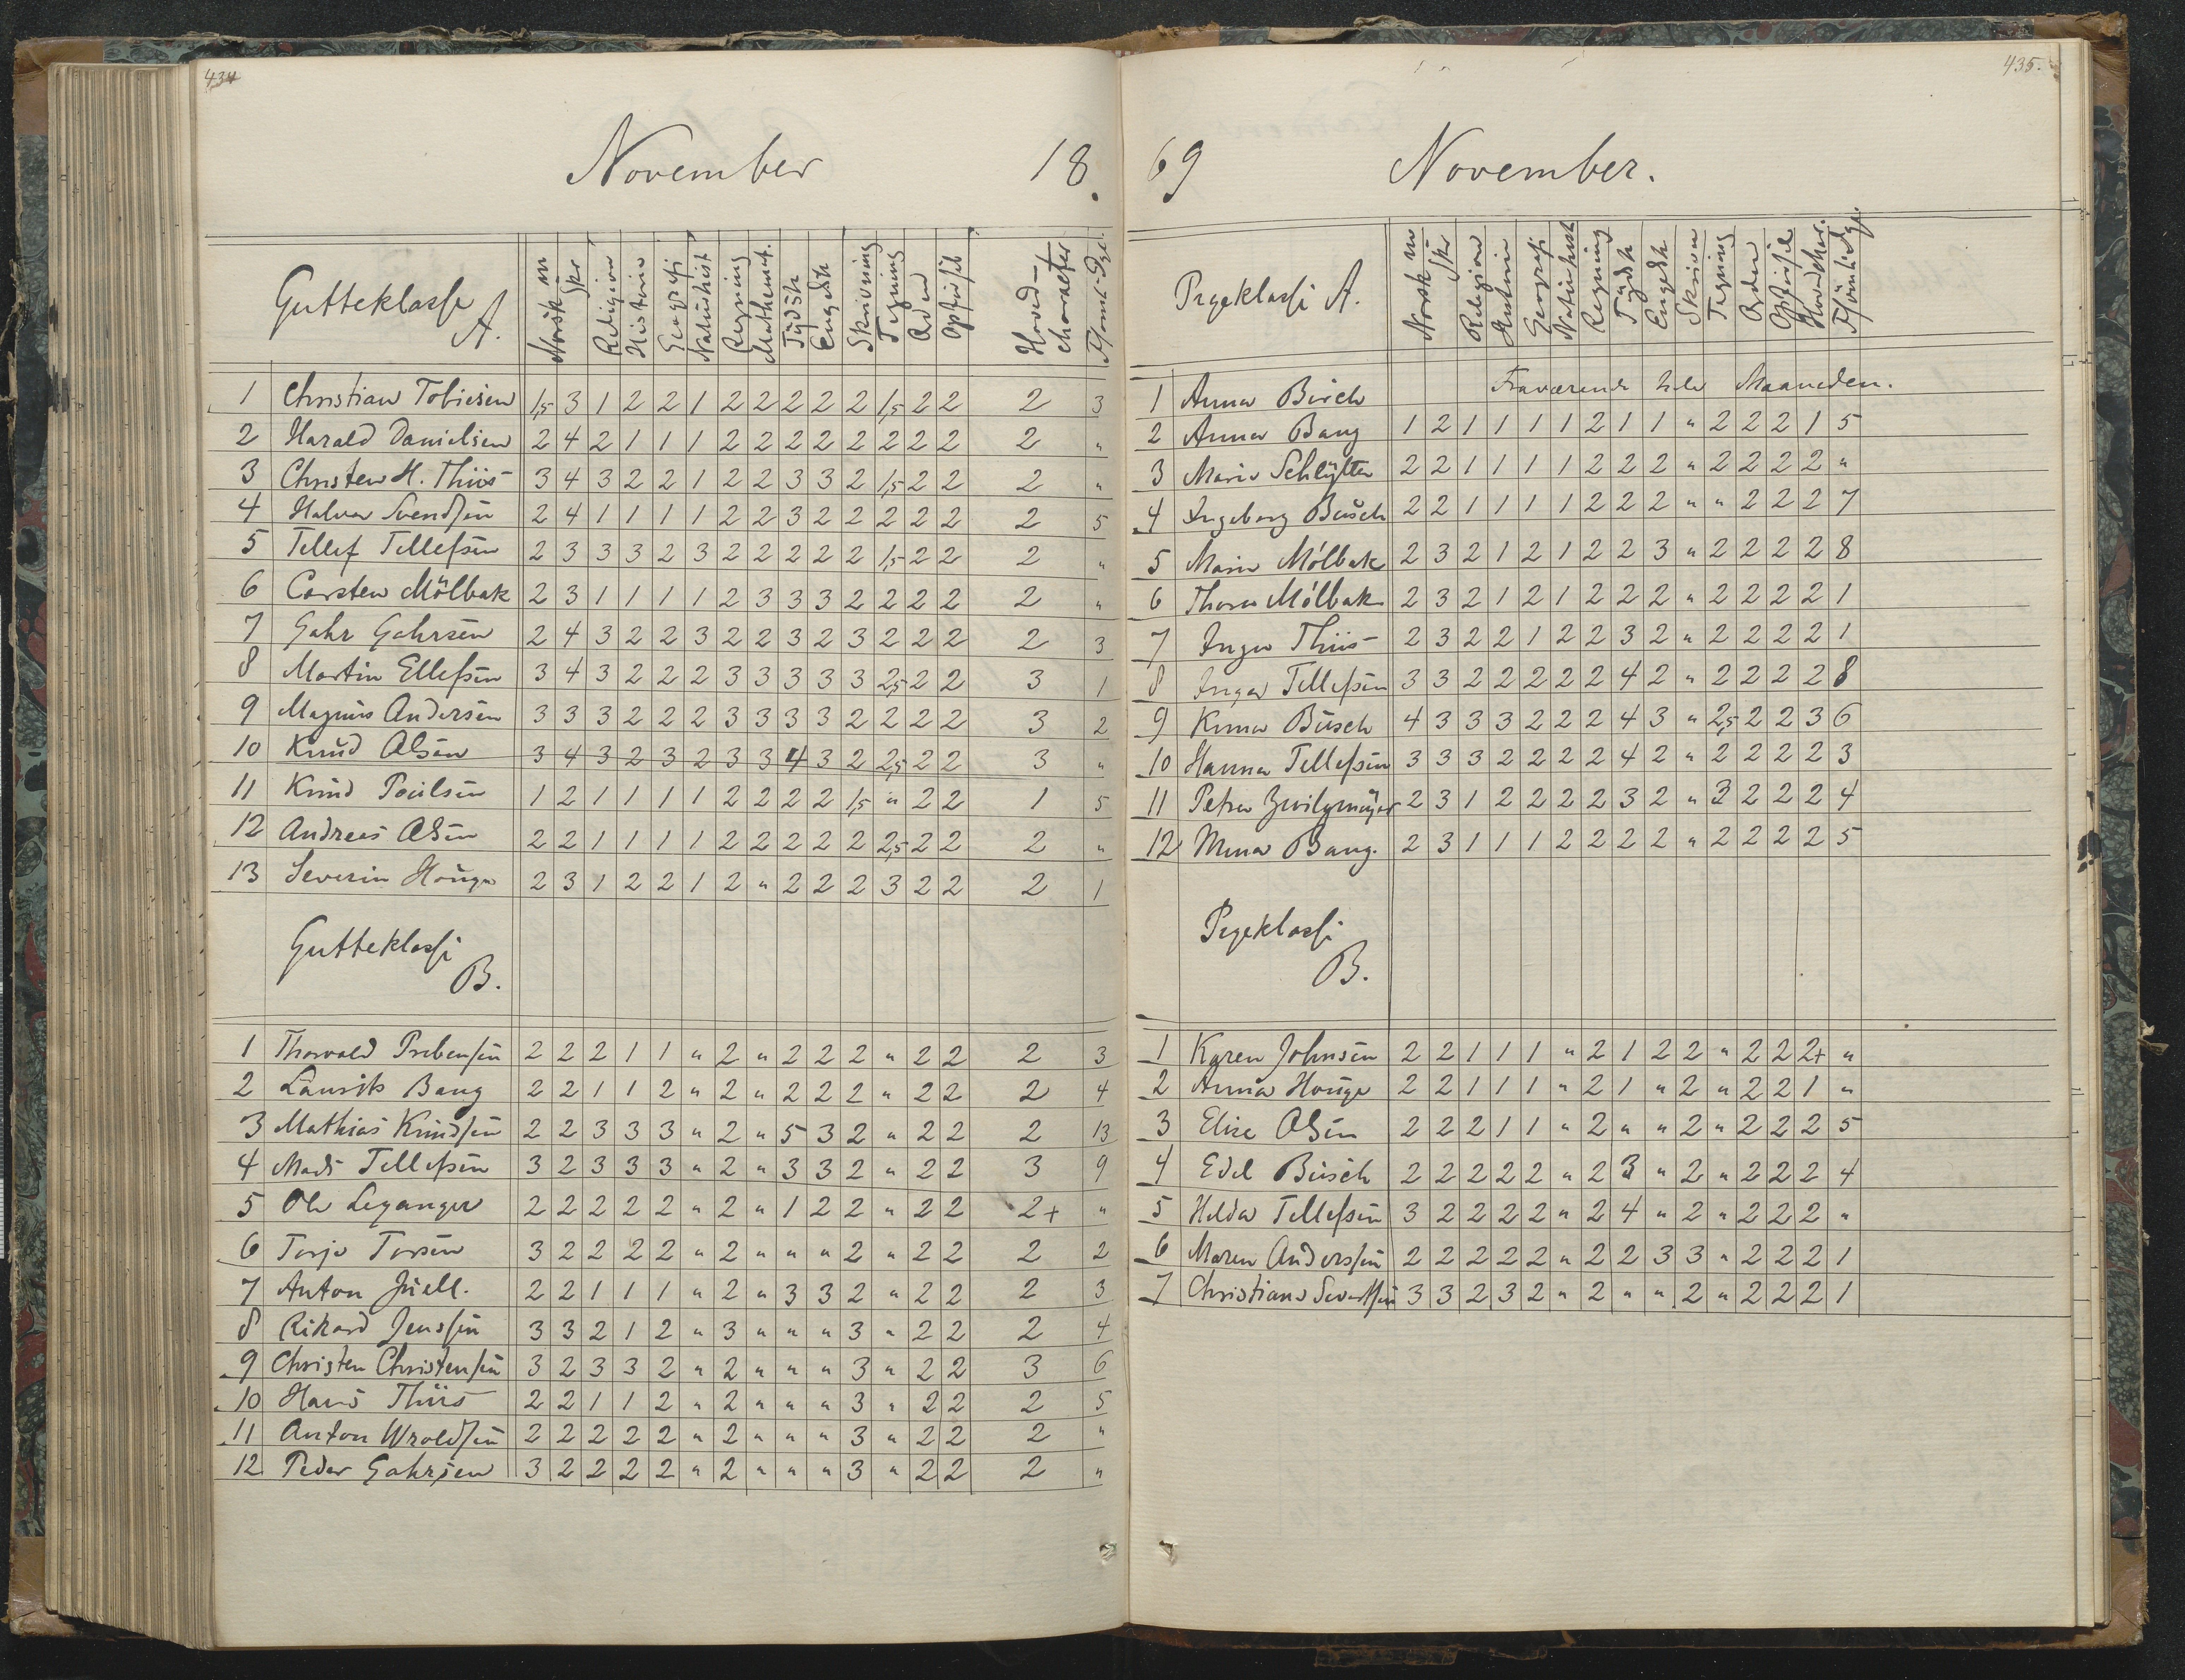 434
November 18.
Gutteklasse A. Norsk m Skr Religion Historie Geografi Naturhist Regning Mathemat. Tydsk Engelsk Skrivning Tegning Orden Opførsel Hoved-charakter
1 Christian Tobiesen 1,5 3 1 2 2 1 2 2 2 2 2 1,5 2 2 2 3
2 Harald Danielsen 2 4 2 1 1 1 2 2 2 2 2 2 2 2 2 "
3 Christen H. Thiis 3 4 3 2 2 1 2 2 3 3 2 1,5 2 2 2 "
4 Halvor Svendsen 2 4 1 1 1 1 2 2 3 2 2 2 2 2 2 5
5 Tellef Tellefsen 2 3 3 3 2 3 2 2 2 2 2 1,5 2 2 2 "
6 Carsten Mölbak 2 3 1 1 1 1 2 3 3 3 2 2 2 2 2 "
7 Gahr Gahrsen 2 4 3 2 2 3 2 2 3 2 3 2 2 2 2 3
8 Martin Ellefsen 3 4 3 2 2 2 3 3 3 3 3 2,5 2 2 3 1
9 Magnus Andersen 3 3 3 2 2 2 3 3 3 3 2 2 2 2 3 2
10 Knud Olsen 3 4 3 2 3 2 3 3 4 3 2 2,5 2 2 3 "
11 Knud Poulsen 1 2 1 1 1 1 2 2 2 2 1,5 " 2 2 1 5
12 Andreas Olsen 2 2 1 1 1 1 2 2 2 2 2 2,5 2 2 2 "
13 Severin Houge 2 3 1 2 2 1 2 " 2 2 2 3 2 2 2 1
Gutteklasse B.
1 Thorvald Prebensen 2 2 2 1 1 " 2 " 2 2 2 " 2 2 2 3
2 Laurits Bang 2 2 1 1 2 " 2 " 2 2 2 " 2 2 2 4
3 Mathias Knudsen 2 2 3 3 3 " 2 " 5 3 2 " 2 2 2 13
4 Mads Tellefsen 3 2 3 3 3 " 2 " 3 3 2 " 2 2 3 9
5 Ole Leganger 2 2 2 2 2 " 2 " 1 2 2 " 2 2 2+ "
6 Torje Torsen 3 2 2 2 2 " 2 " " " 2 " 2 2 2 2
7 Anton Juell. 2 2 1 1 1 " 2 " 3 3 2 " 2 2 2 3
8 Rikard Jenssen 3 3 2 1 2 " 3 " " " 3 " 2 2 2 4
9 Christen Christensen 3 2 3 3 2 " 2 " " " 3 " 2 2 3 6
10 Hans Thiis 2 2 1 1 2 " 2 " " " 3 " 2 2 2 5
11 Anton Wroldsen 2 2 2 2 2 " 2 " " " 3 " 2 2 2 "
12 Peder Gahrsen 3 2 2 2 2 " 2 " " " 3 " 2 2 2 "
435.
69 November.
Pigeklasse A. Norsk m Skr Religion Historie Geografi Naturhist Regning Tydsk Engelsk Skrivn Tegning Orden Opførsel Hovedchar.
1 Anna Birch Fraværende hele Maaneden.
2 Anna Bang 1 2 1 1 1 1 2 1 1 " 2 2 2 1 5
3 Marie Schlytter 2 2 1 1 1 1 2 2 2 " 2 2 2 2 "
4 Ingeborg Busch 2 2 1 1 1 1 2 2 2 " " 2 2 2 7
5 Marie Mölbak 2 3 2 1 2 1 2 2 3 " 2 2 2 2 8
6 Thora Mölbak 2 3 2 1 2 1 2 2 2 " 2 2 2 2 1
7 Inga Thiis 2 3 2 2 1 2 2 3 2 " 2 2 2 2 1
8 Inger Tellefsen 3 3 2 2 2 2 2 4 2 " 2 2 2 2 8
9 Kima Busch 4 3 3 3 2 2 2 4 3 " 2,5 2 2 3 6
10 Hanna Tellefsen 3 3 3 2 2 2 2 4 2 " 2 2 2 2 3
11 Petra Zwilgmeyer 2 3 1 2 2 2 2 3 2 " 3 2 2 2 4
12 Mina Bang. 2 3 1 1 1 2 2 2 2 " 2 2 2 2 5
Pigeklasse B.
1 Karen Johnsen 2 2 1 1 1 " 2 1 2 2 " 2 2 2+ "
2 Anna Houge 2 2 1 1 1 " 2 1 " 2 " 2 2 1 "
3 Elise Olsen 2 2 2 1 1 " 2 " " 2 " 2 2 2 5
4 Edel Busch 2 2 2 2 2 " 2 3 " 2 " 2 2 2 4
5 Helda Tellefsen 3 2 2 2 2 " 2 4 " 2 " 2 2 2 "
6 Maren Anderssen 2 2 2 2 2 " 2 2 3 3 " 2 2 2 1
7 Christiane 3 3 2 3 2 " 2 " " 2 " 2 2 2 1